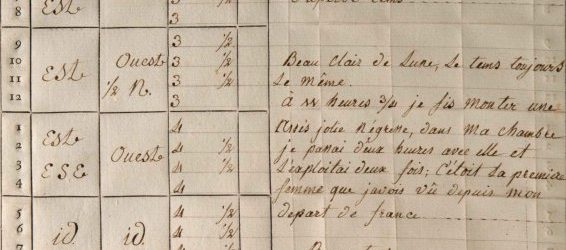 8 Est 3
9 3 ½
10 Est Ouest 3 ½ Beau clair de Lune, Le tems toujours
11 ½ N. 3 ½ Le même.
12 3
À 11 heures ¾ je fis monter une
1 Est 4 assés jolie Négrine, dans ma chambre
2 4 ½ je passai deux heures avec elle et
3 ESE Ouest 4 ½ L'exploitai deux fois; C'étoit la premiere
4 4 femme que javois vû depuis mon
5 4 ½ depart de france
6 id. id. 4
7 4 ½